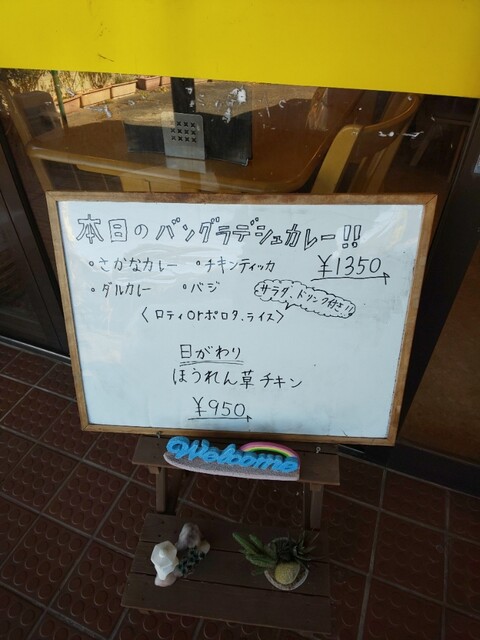 本日のバングラデシュカレー!!
・さかなカレー ・チキンティッカ ¥1350
・ダルカレー ・バジ サラダ、ドリンク付き!!
〈ロティorポロタ、ライス〉
日がわり
ほうれん草チキン
¥950
Welcome